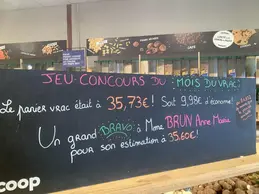 JEU-CONCOURS DU MOIS DU VRAC
Le panier vrac était à 35,73€! Soit 9,98€ d'économie!
Un grand BRAVO à Mme BRUN Anne Marie
pour son estimation à 35.60€!
coop